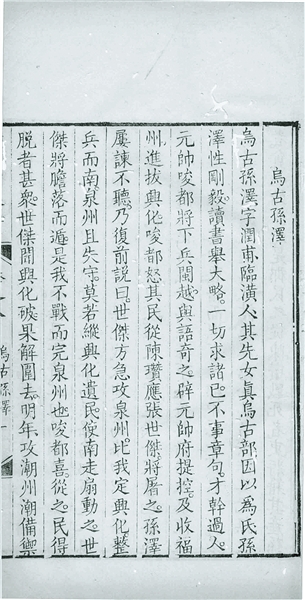 烏古孫澤
烏古孫澤字潤甫臨潢人其先女眞烏古部因以爲氏孫
澤性剛毅讀書舉大略一切求諸己不事章句才幹過人
元帥唆都將下兵閩越與語奇之辟元帥府提控及收福
州進拔興化唆都怒其民從陳瓚應張世傑將屠之孫澤
屢諫不聽乃復前說曰世傑方急攻泉州比我定興化整
兵而南泉州且失守莫若縱興化遺民使南走扇動之世
傑將膽落而遁是我不戰而完泉州也唆都喜從之民得
脫者甚衆世傑聞興化破果解圍去明年攻潮州潮備禦
烏古孫澤 一